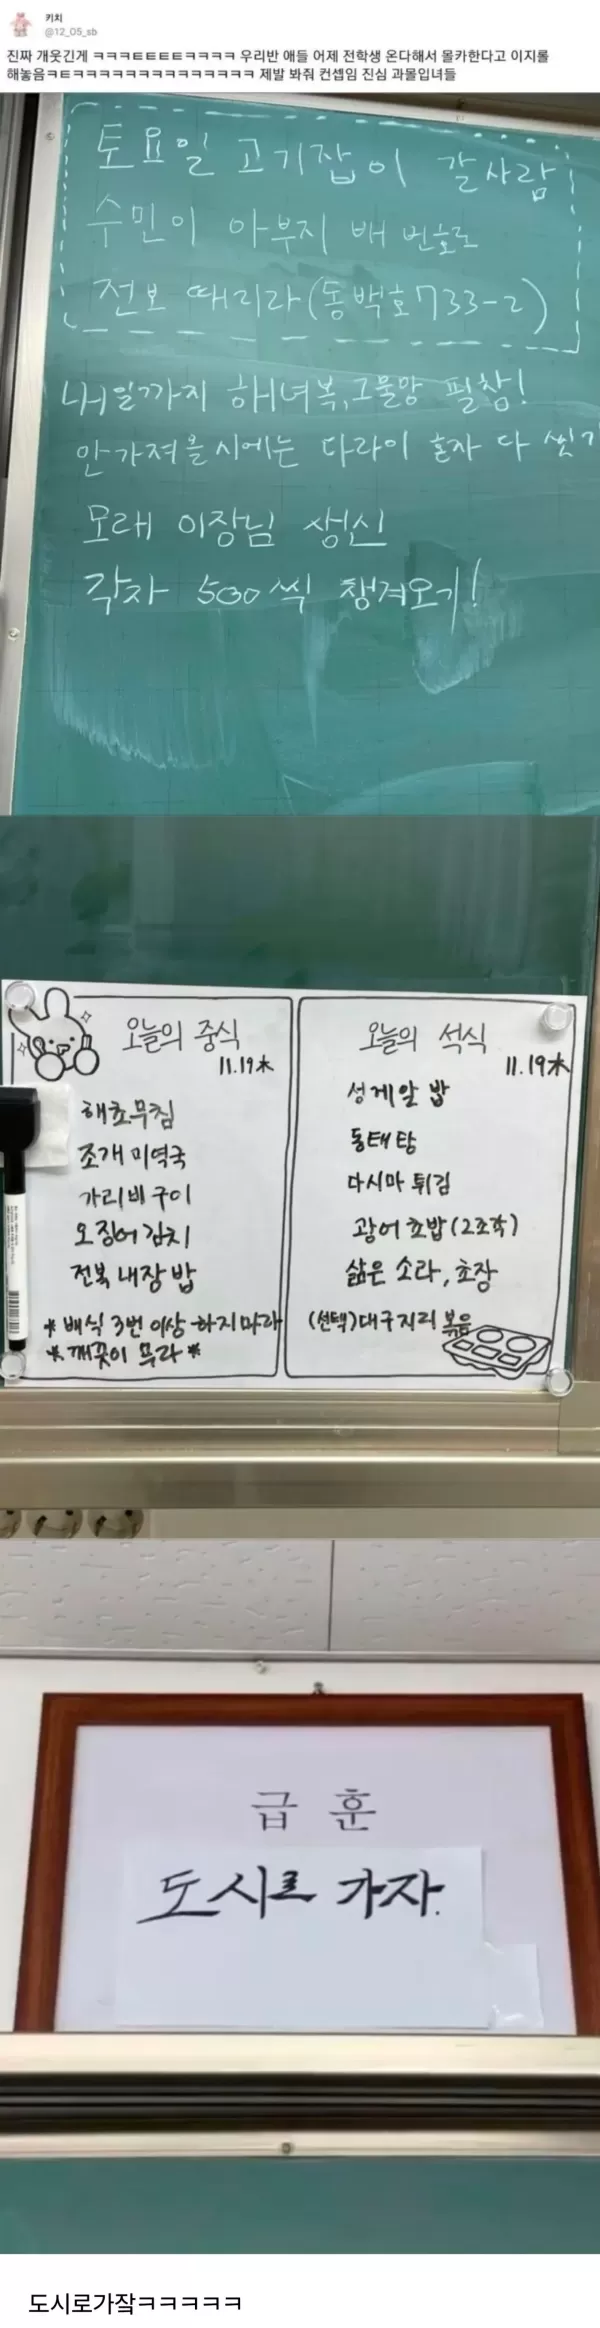 키치
@12_05_sb
진짜 개웃긴게 ㅋㅋㅋㅌㅌㅌㅌㅋㅋㅋㅋ 우리반 애들 어제 전학생 온다해서 몰카한다고 이지롤
해놓음ㅋㅌㅋㅋㅋㅋㅋㅋㅋㅋㅋㅋㅋㅋㅋㅋ 제발 봐줘 컨셉임 진심 과몰입녀들
토요일 고기잡이 갈사람
수민이 아부지 배 번호로
전보 때리라(동백호733-2)
내일까지 해녀복,그물망 필참!
안가져올시에는 다라이 혼자 다 씻기
모래 이장님 생신
각자 500씩 챙겨오기!
오늘의 중식
11.19木
해초무침
조개미역국
가리비구이
오징어김치
전복내장밥
*배식 3번 이상 하지마라
*깨끗이 무라*
오늘의 석식
11.19木
성게알 밥
동태탕
다시마 튀김
광어초밥(2조각)
삶은 소라, 초장
(선택)대구지리볶음
급훈
도시로 가자.
도시로가잨ㅋㅋㅋㅋㅋ